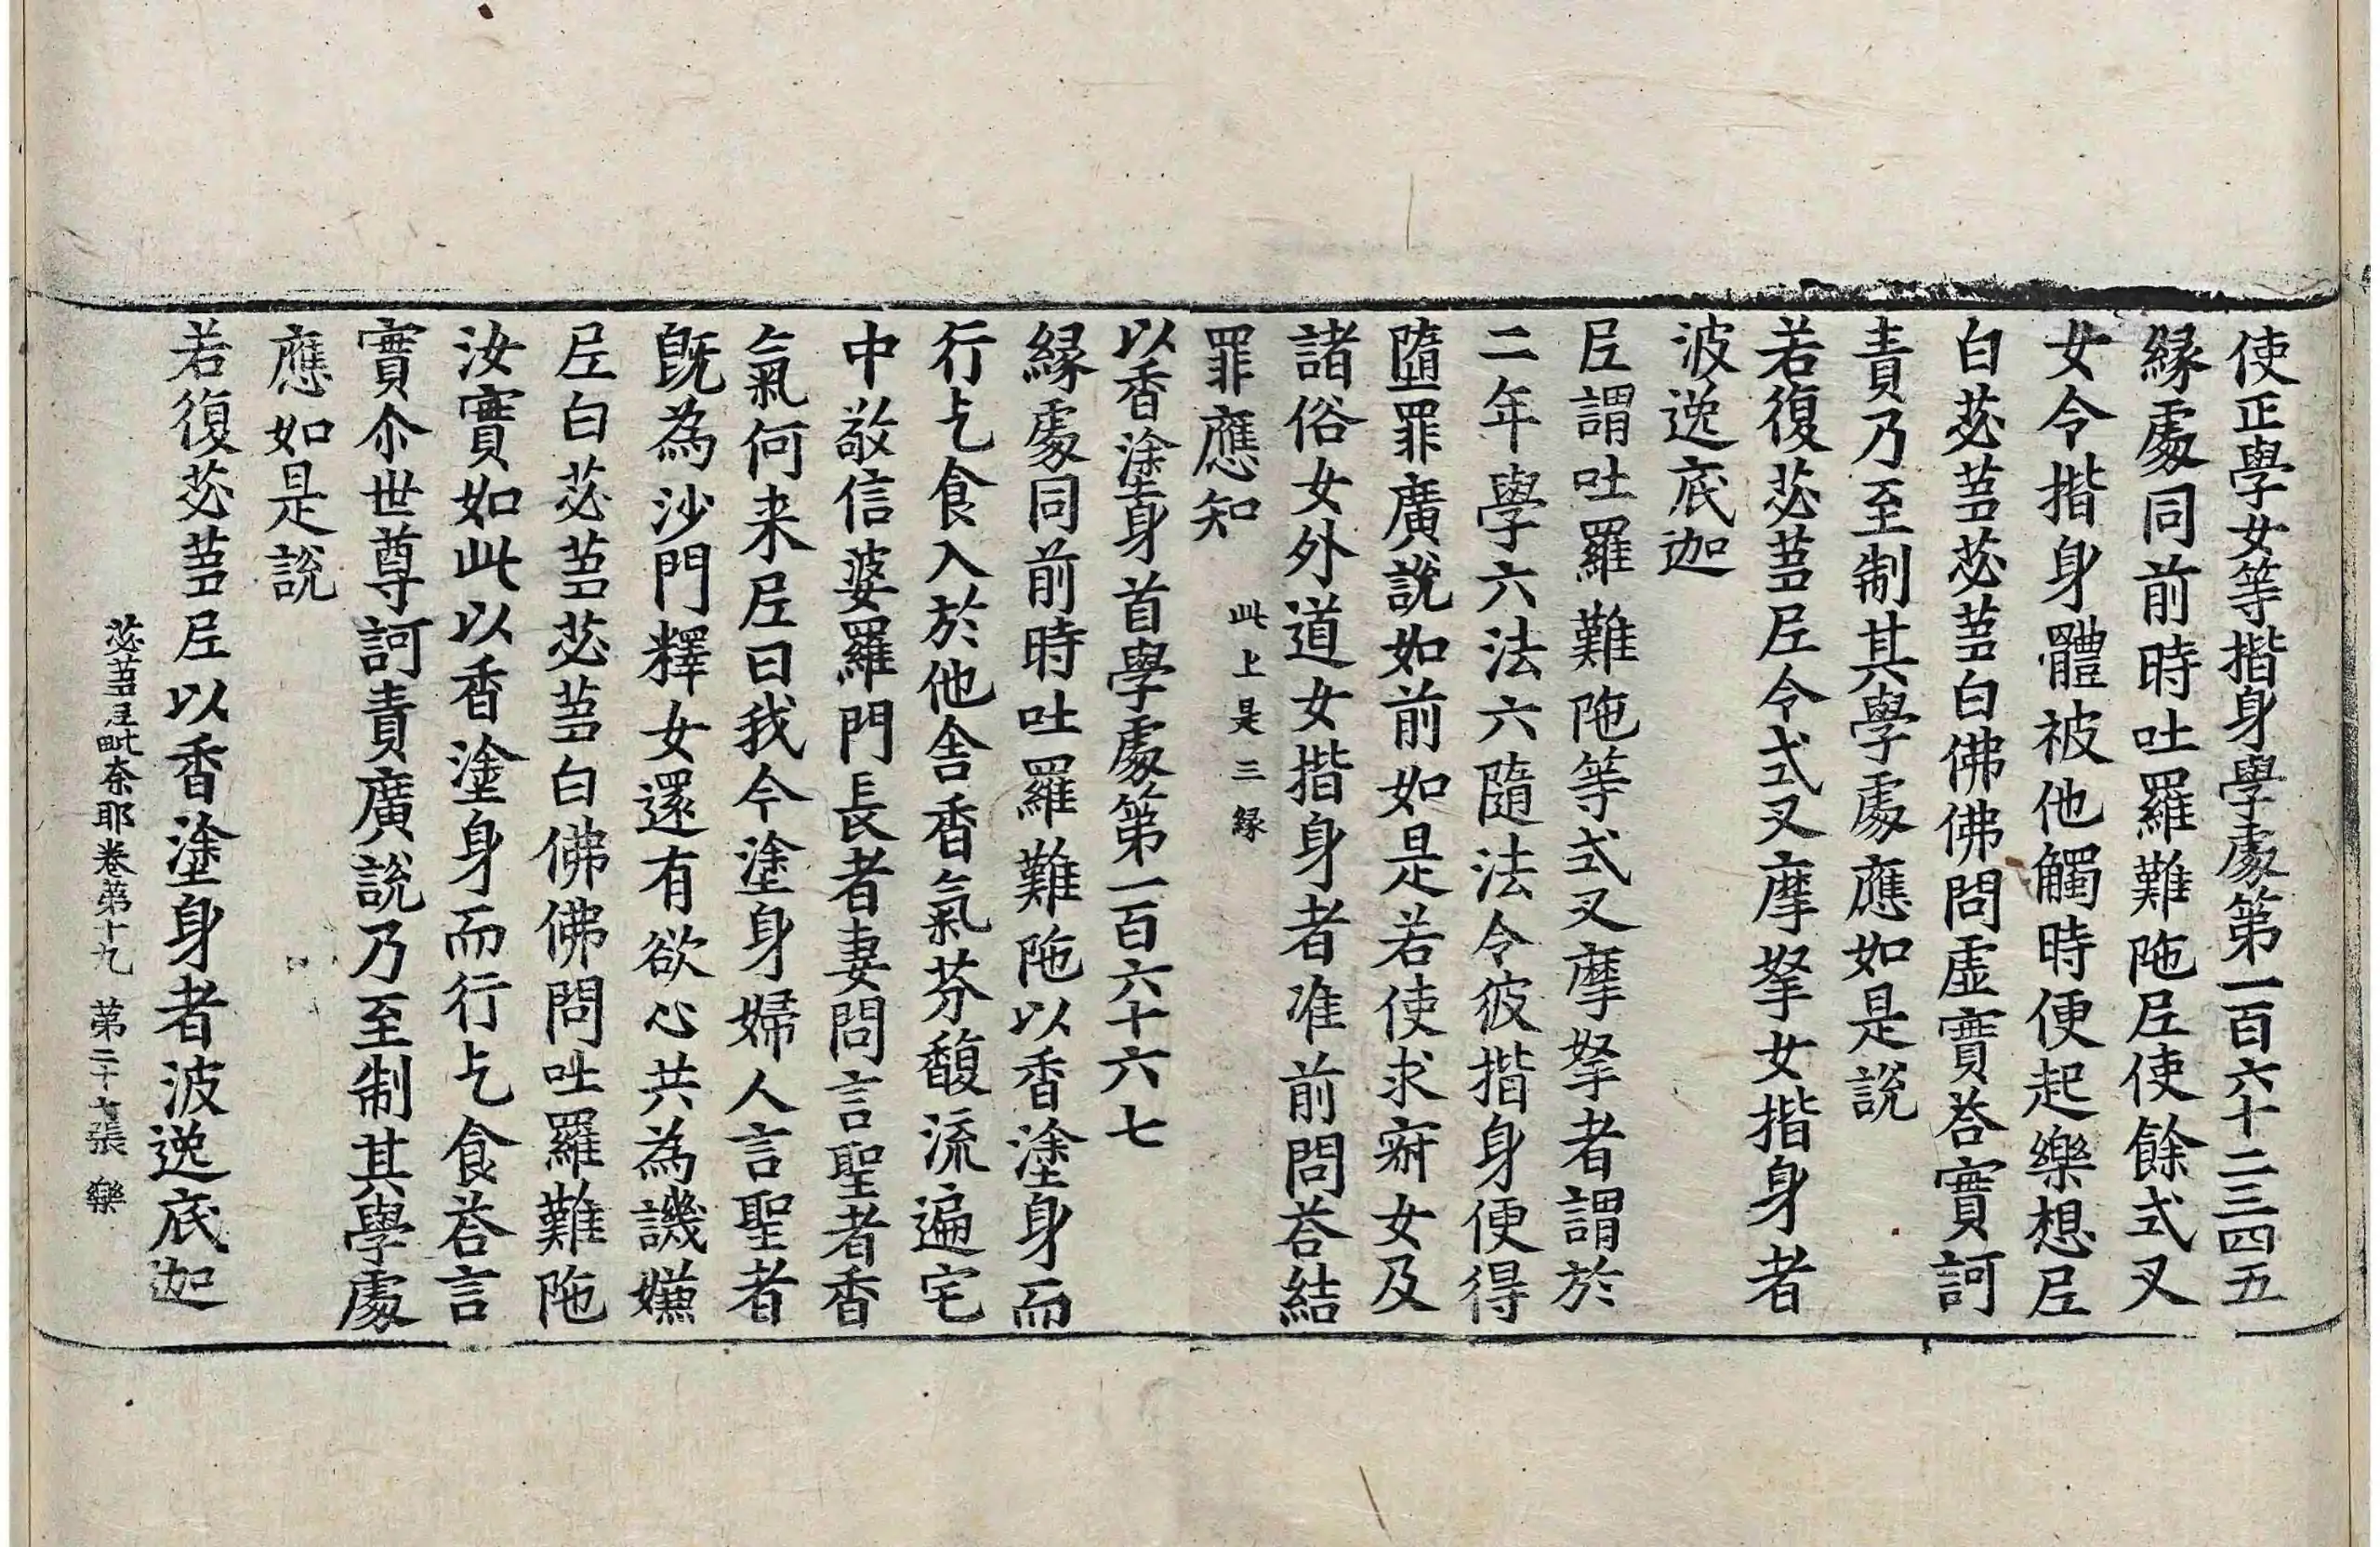 使正學女等揩身學處第一百六十二三四五
緣處同前時吐羅難陁尼使餘式叉
女令揩身體被他觸時便起樂想尼
白苾蒭苾蒭白佛佛問虛實荅實訶
責乃至制其學處應如是說
若復苾蒭尼令式叉摩拏女揩身者
波逸底迦
尼謂吐羅難陁等式叉摩拏者謂於
二年學六法六隨法令彼揩身便得
墮罪廣說如前如是若使求寂女及
諸俗女外道女揩身者准前問荅結
罪應知 此上是三緣
以香塗身首學處第一百六十六七
緣處同前時吐羅難陁以香塗身而
行乞食入於他舍香氣芬馥流遍宅
中敬信婆羅門長者妻問言聖者香
氣何来尼曰我今塗身婦人言聖者
旣為沙門釋女還有欲心共為譏嫌
尼白苾蒭苾蒭白佛佛問吐羅難陁
汝實如此以香塗身而行乞食荅言
實尒世尊訶責廣說乃至制其學處
應如是說
若復苾蒭尼以香塗身者波逸底迦
苾蒭尼毗奈耶卷第十九 第二十七張 樂